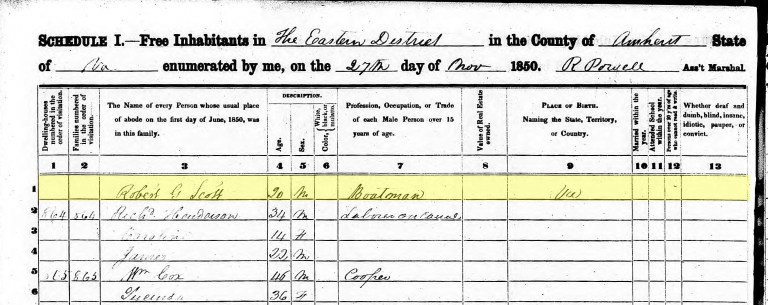 SCHEDULE I.—Free Inhabitants in The Eastern District in the County of Amherst State
of Va enumerated by me, on the 27th day of Nov 1850. R Powell Ass't Marshal.
Dwelling-houses numbered in the order of visitation.
Families numbered in the order of visitation.
The Name of every Person whose usual place of abode on the first day of June, 1850, was in this family.
DESCRIPTION.
Age.
Sex.
Color, White, black, or mulatto.
Profession, Occupation, or Trade of each Male Person over 15 years of age.
Value of Real Estate owned.
PLACE OF BIRTH.
Naming the State, Territory, or Country.
Married within the year.
Attended School within the year.
Persons over 20 y'rs of age who cannot read & write.
Whether deaf and dumb, blind, insane, idiotic, pauper, or convict.
1 2 3 4 5 6 7 8 9 10 11 12 13
1 Robert G Scott 20 M Boatman Va
2 864 864 Richd Henderson 34 M Laborer on Canal
3 Caroline 14 F
4 James 22 M
5 865 865 Wm Cox 46 M Cooper
6 Lucinda 36 F